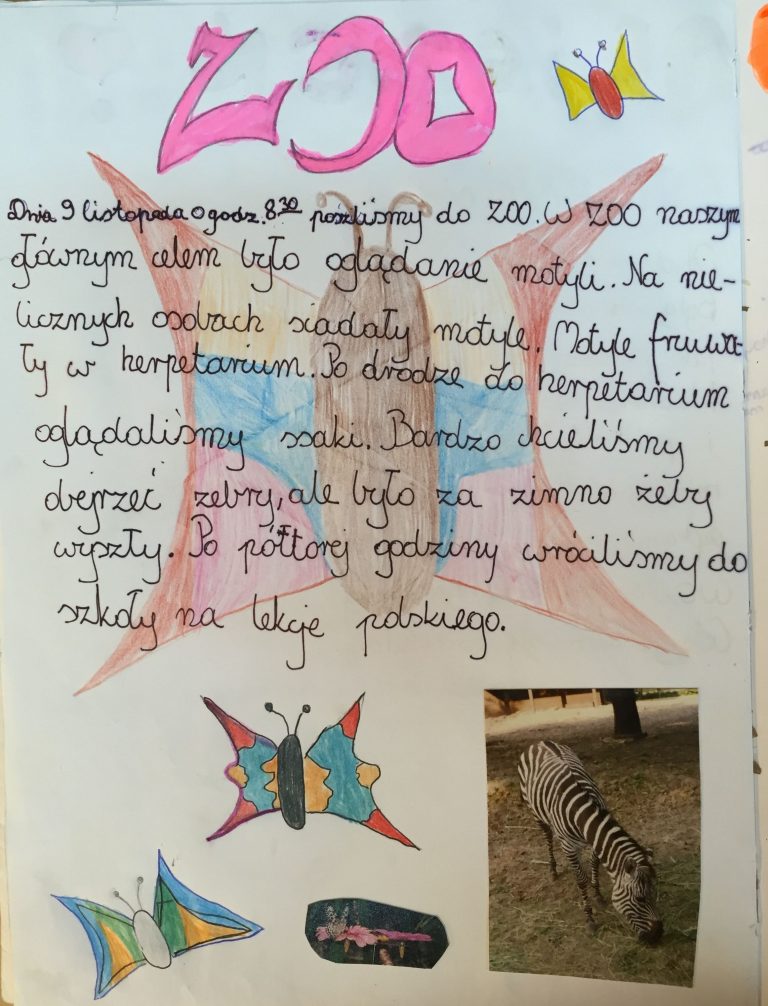 ZOO
Dnia 9 listopada o godz. 8.30 poszliśmy do ZOO. W ZOO naszym
głównym celem było oglądanie motyli. Na nie-
licznych osobach siadały motyle. Motyle fruwa-
ły w herpetarium. Po drodze do herpetarium
oglądaliśmy ssaki. Bardzo chcieliśmy
obejrzeć zebry, ale było za zimno żeby
wyszły. Po półtorej godziny wróciliśmy do
szkoły na lekcje polskiego.